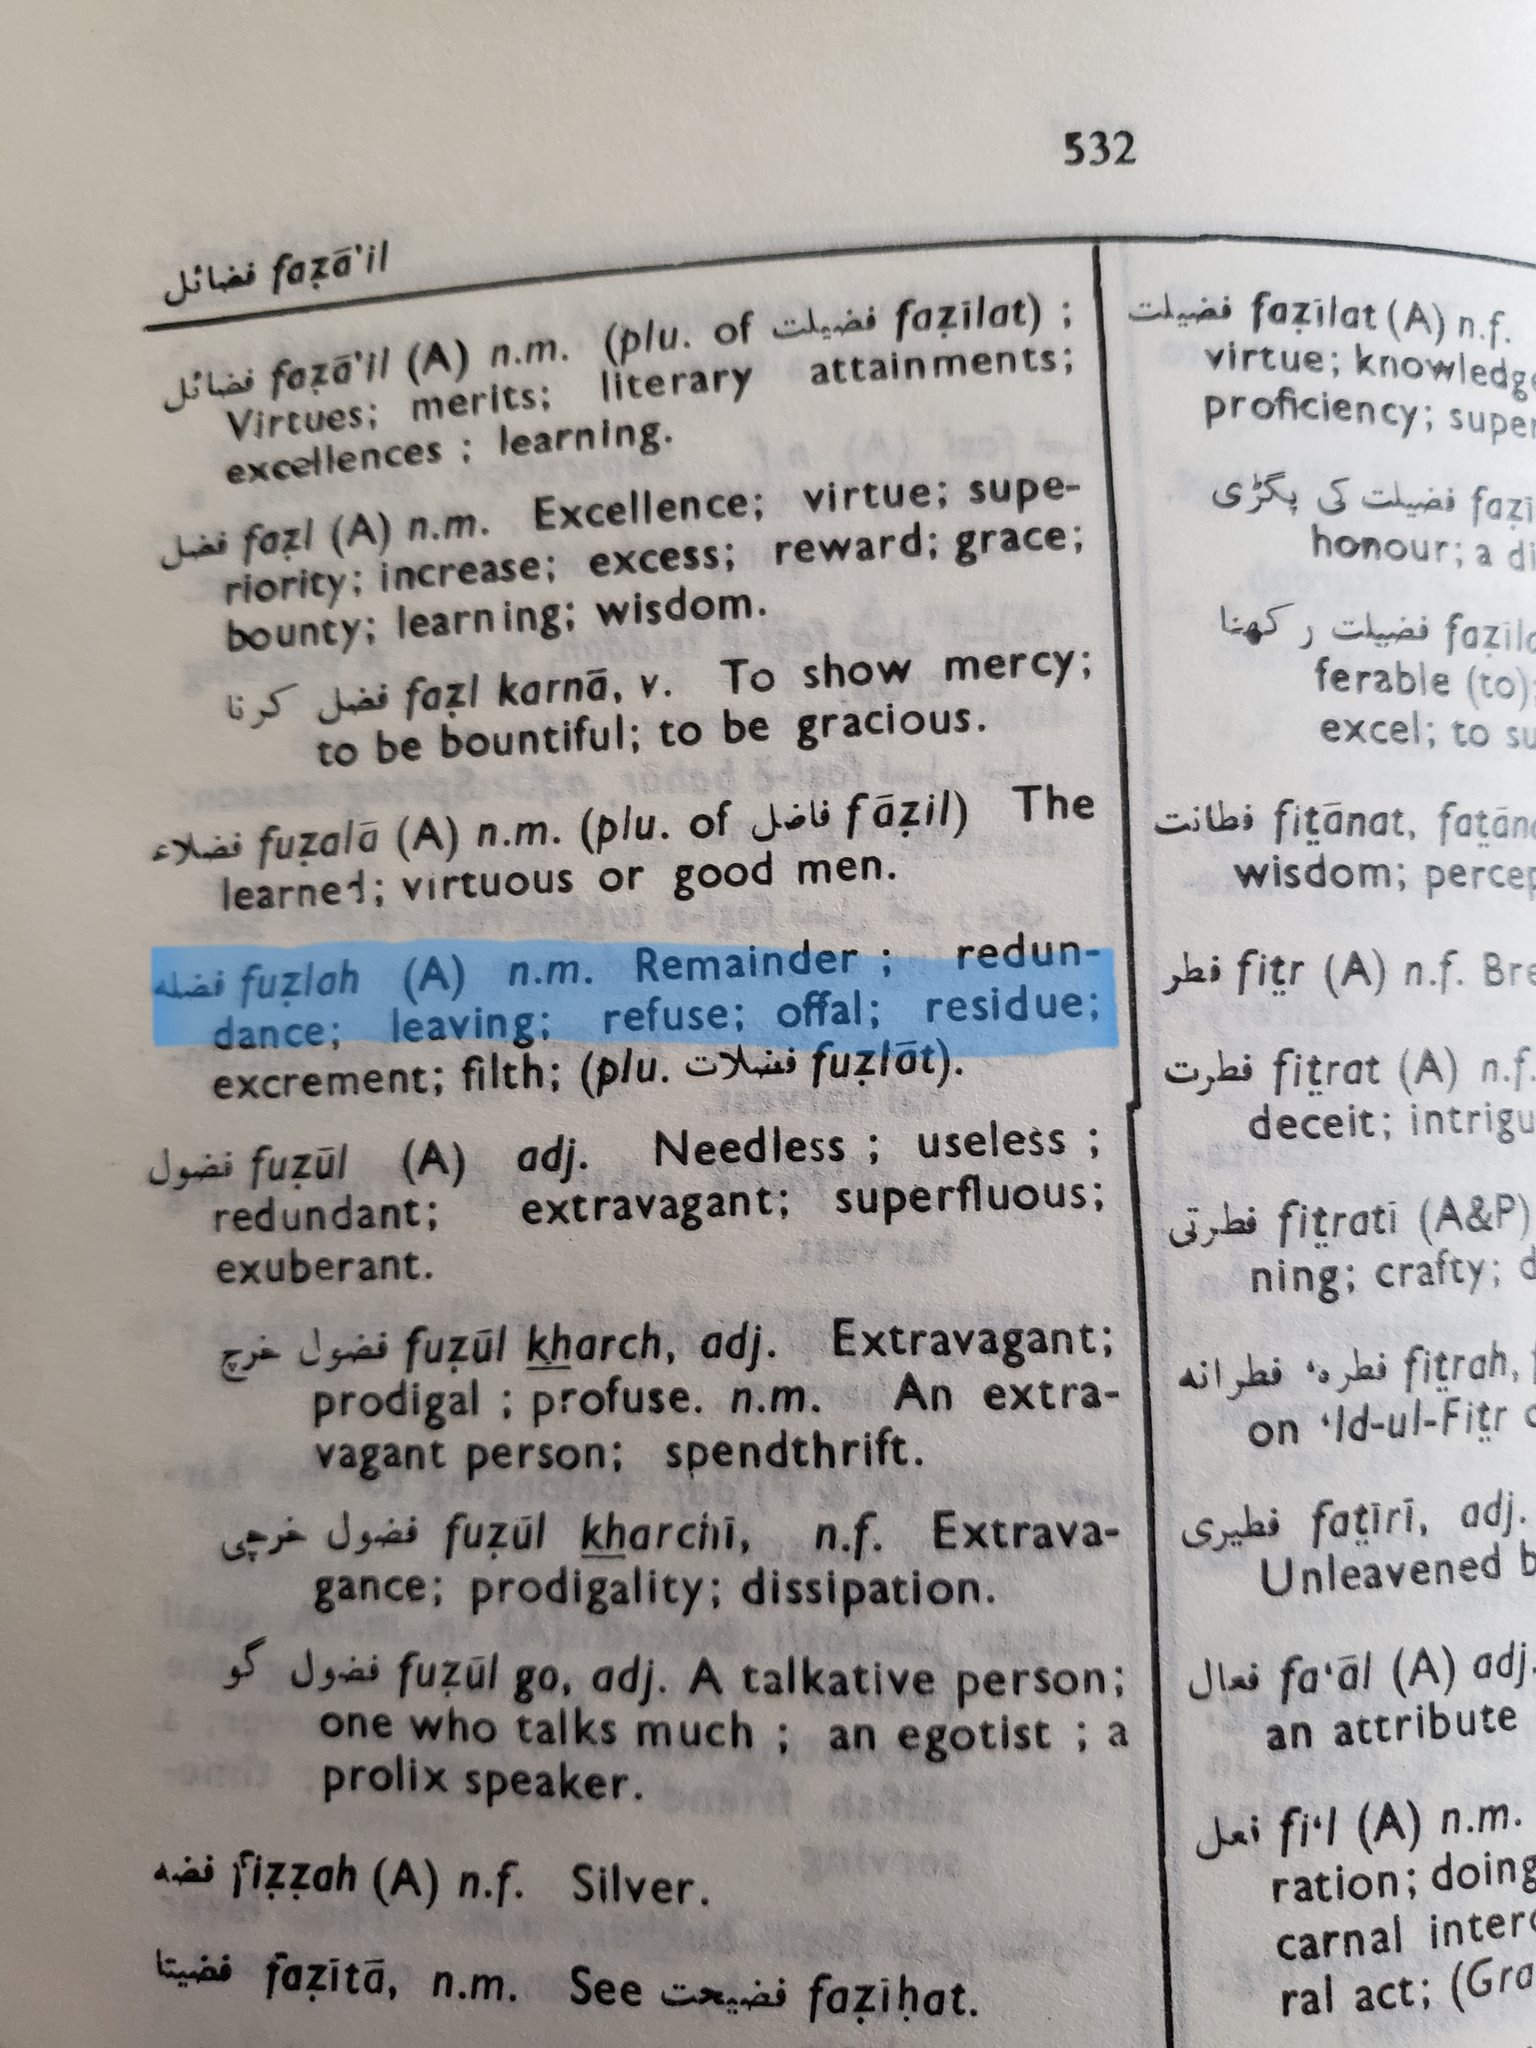 532
فضائل faẓā'il
فضائل faẓā'il (A) n.m. (plu. of فضیلت faẓīlat) ;
Virtues; merits; literary attainments;
excellences ; learning.
فضل faẓl (A) n.m. Excellence; virtue; supe-
riority; increase; excess; reward; grace;
bounty; learning; wisdom.
فضل کرنا faẓl karnā, v. To show mercy;
to be bountiful; to be gracious.
فضلاء fuẓalā (A) n.m. (plu. of فاضل fāẓil) The
learned; virtuous or good men.
فضلہ fuẓlah (A) n.m. Remainder ; redun-
dance; leaving; refuse; offal; residue;
excrement; filth; (plu. فضلات fuẓlāt).
فضول fuẓūl (A) adj. Needless ; useless ;
redundant; extravagant; superfluous;
exuberant.
فضول خرچ fuẓūl kharch, adj. Extravagant;
prodigal ; profuse. n.m. An extra-
vagant person; spendthrift.
فضول خرچی fuẓūl kharchī, n.f. Extrava-
gance; prodigality; dissipation.
فضول گو fuẓūl go, adj. A talkative person;
one who talks much ; an egotist ; a
prolix speaker.
فضہ fiẓẓah (A) n.f. Silver.
فضیتا faẓītā, n.m. See فضیحت faẓīḥat.
فضیلت faẓīlat (A) n.f.
virtue;
proficiency;
فضیلت کی پگڑی
honour; a
فضیلت رکھنا
ferable (to)
excel; to
فطانت fiṭānat,
wisdom;
فطر fiṭr (A) n.f.
فطرت fiṭrat (A) n.f.
deceit;
فطرتی fiṭratī (A&P)
ning; crafty;
فطرہ، فطرانہ fiṭrah,
on 'Id-ul-Fiṭr
فطیری faṭīrī, adj.
Unleavened
فعال fa'āl (A) adj.
an attribute
فعل fi'l (A) n.m.
ration; doing
carnal
ral act;